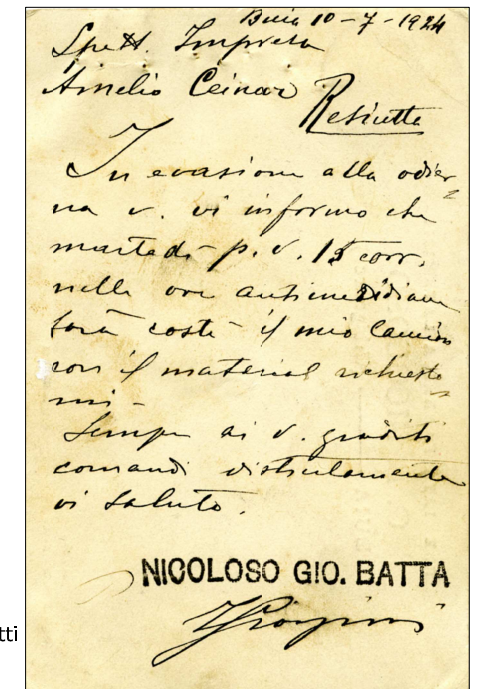 Buia 10-7-1924
Spett. Impresa
Amelio Ceinar
Resiutta
In evasione alla odier=
na v. vi informo che
martedi p.v. 15 corr.
nelle ore antimeridiane
sarà costì il mio Camion
con il material richiesto=
mi-
Sempre ai v. graditi
comandi distintamente
vi saluto.
NICOLOSO GIO. BATTA
tti